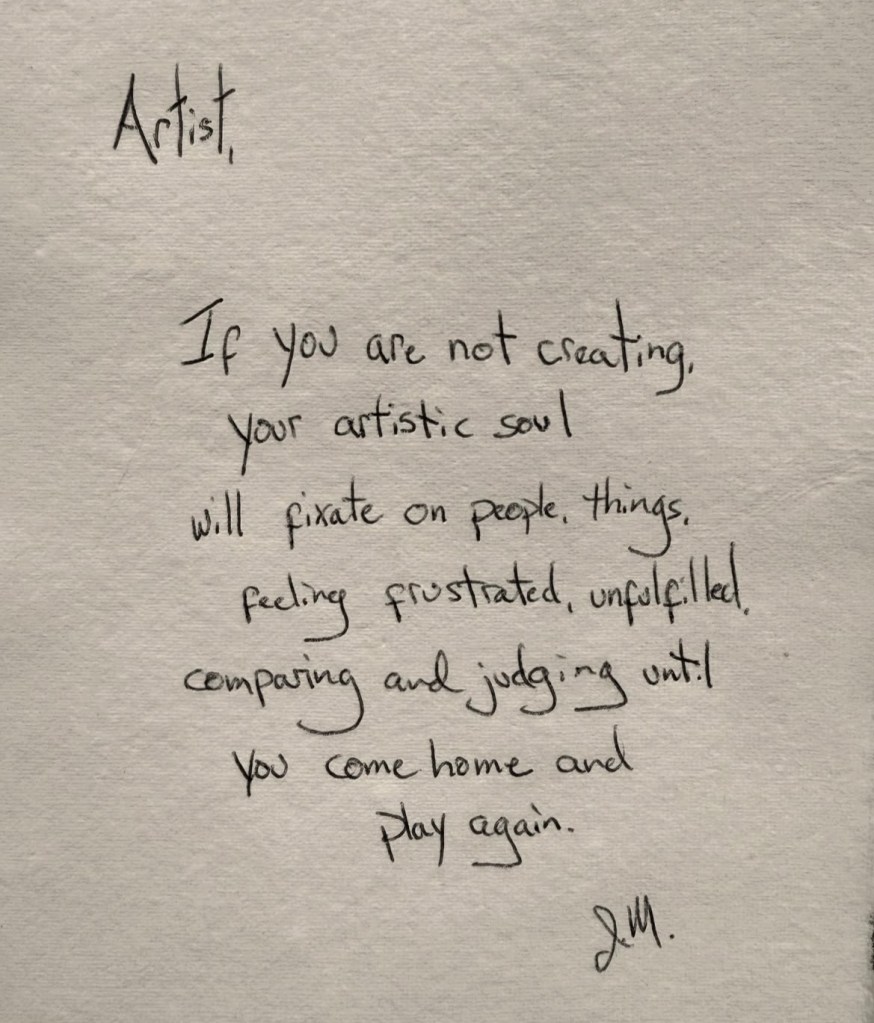 Artist,
If you are not creating,
your artistic soul
will fixate on people, things,
feeling frustrated, unfulfilled,
comparing and judging until
you come home and
play again.
J.M.